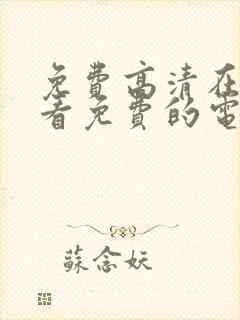 免費高清在
看免費的電
蘇念妖